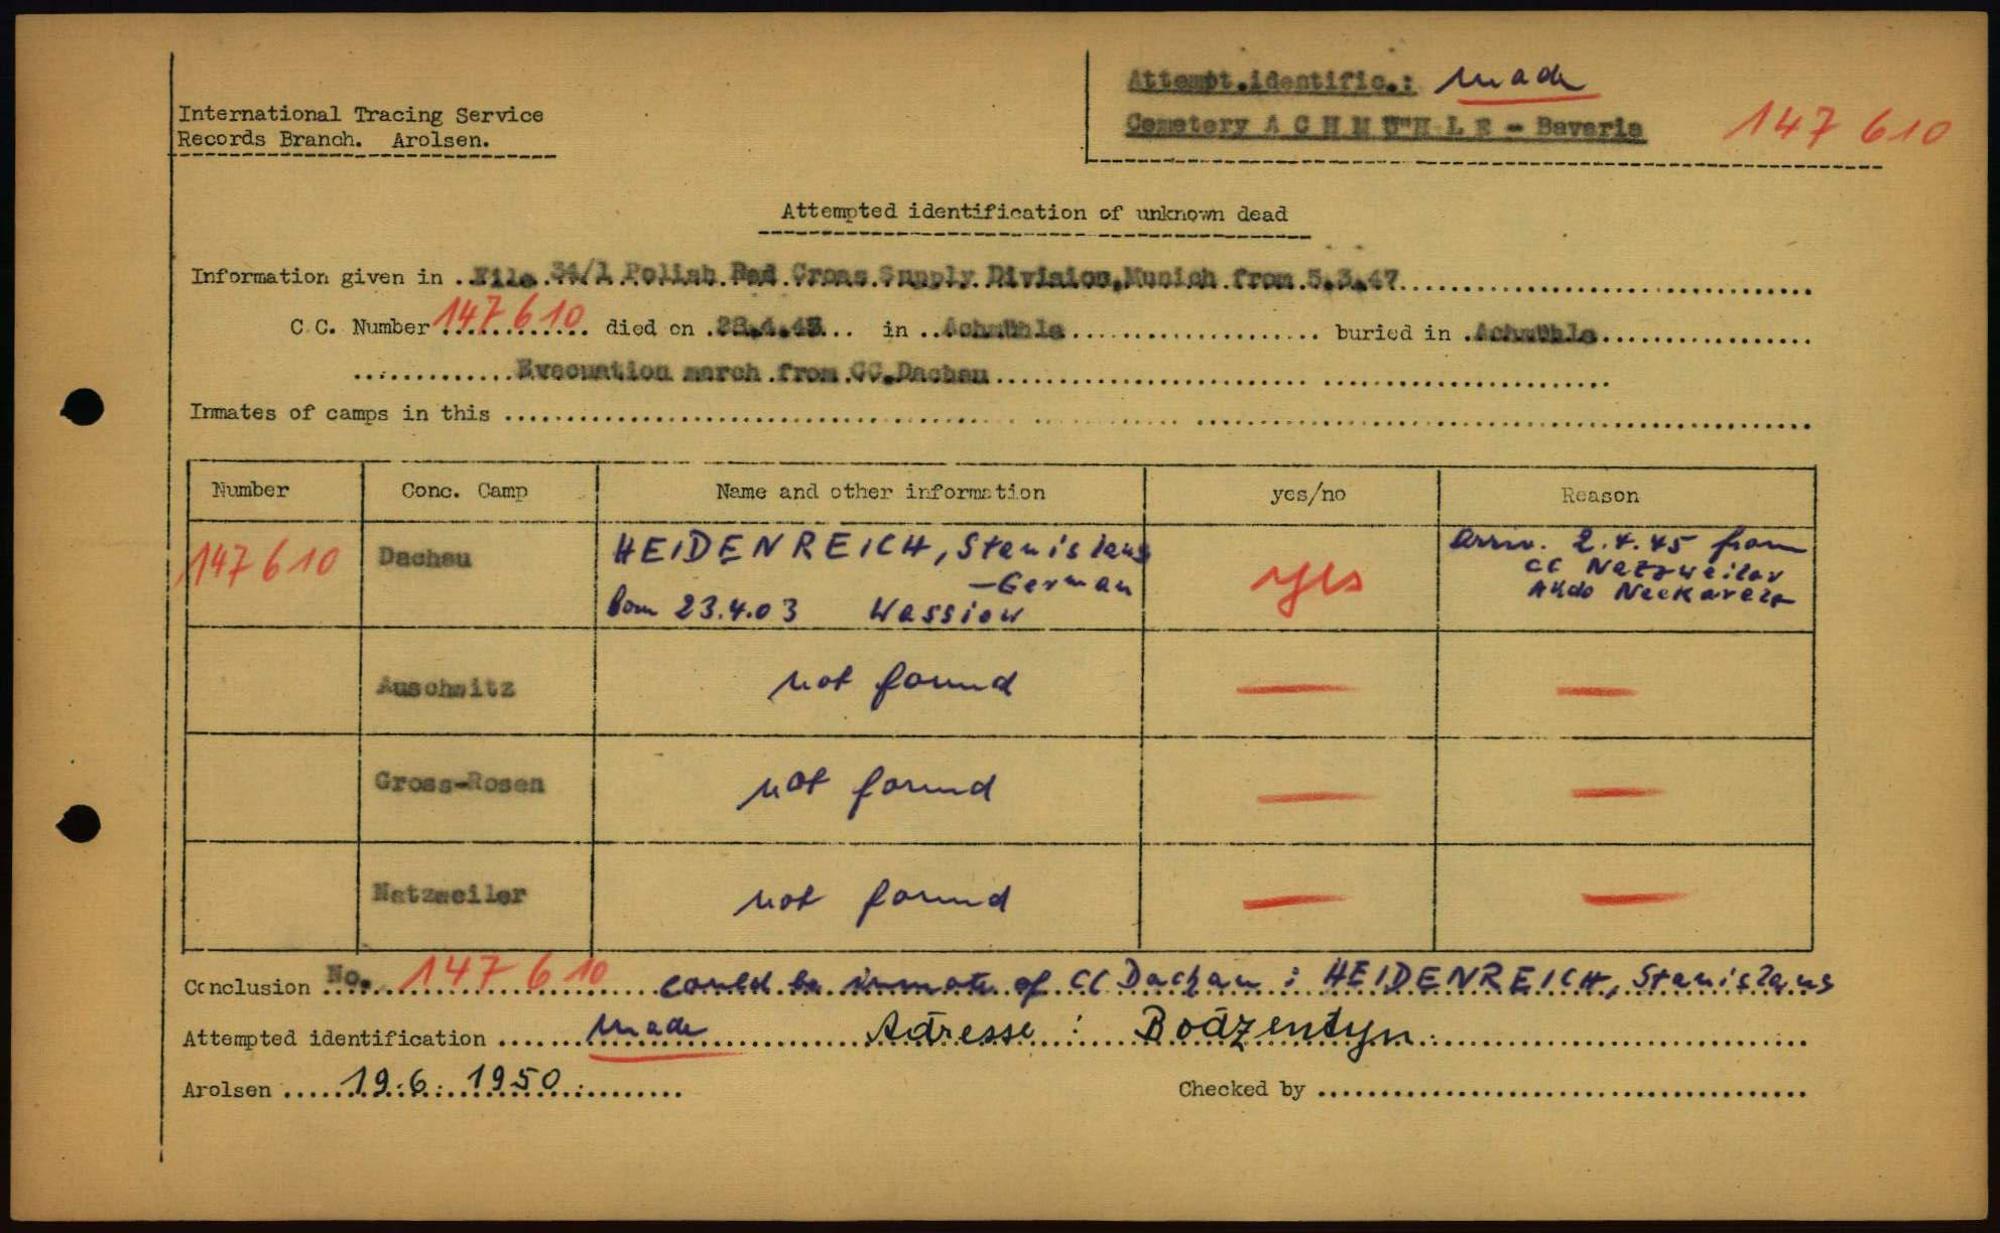 Attempt.identific.: made
International Tracing Service
Records Branch. Arolsen.
Cemetery A C H M Ü H L E - Bavaria 147 610
Attempted identification of unknown dead
Information given in File 34/1 Polish Red Cross Supply Division, Munich from 5.3.47
C.C. Number 147 610 died on in Achmühle buried in Achmühle
Evacuation march from CC.Dachau
Inmates of camps in this
Number Conc. Camp Name and other information yes/no Reason
147 610 Dachau HEIDENREICH, Stanislaus yes Arriv. 2.4.45 from
- German CC Natzweiler
born 23.4.03 Wassiow Akdo Neckarelz
Auschwitz not found — —
Gross-Rosen not found — —
Natzweiler not found — —
Conclusion No. 147 610 could be inmate of CC Dachau : HEIDENREICH, Stanislaus
Attempted identification made Adresse : Bodzentyn
Arolsen 19.6. 1950. Checked by